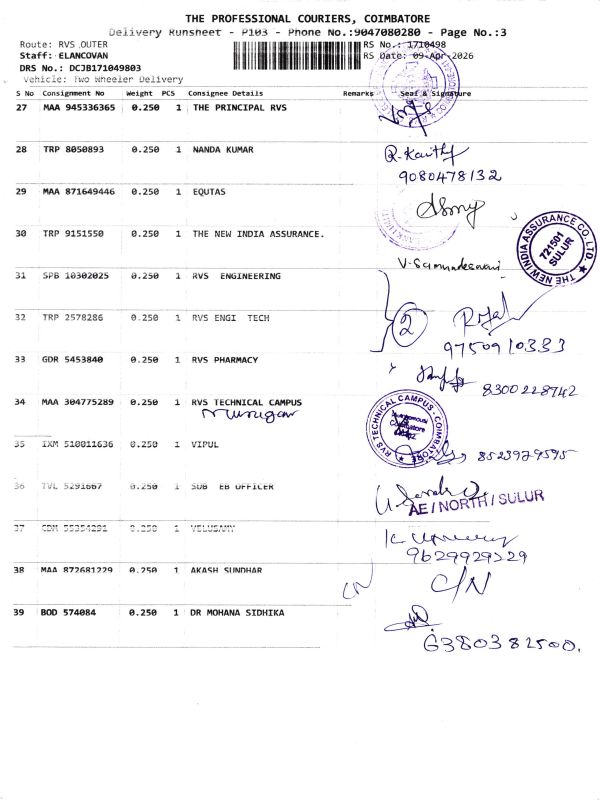 THE PROFESSIONAL COURIERS, COIMBATORE
Delivery Runsheet - P103 - Phone No.:9047080280 - Page No.:3
Route: RVS OUTER
RS No.: 1710498
Staff: ELANCOVAN
RS Date: 09-Apr-2026
DRS No.: DCJB171049803
Vehicle: Two Wheeler Delivery
S No Consignment No Weight PCS Consignee Details Remarks Seal & Signature
27 MAA 945336365 0.250 1 THE PRINCIPAL RVS
28 TRP 8050893 0.250 1 NANDA KUMAR
R. Kaithy
9080478132
29 MAA 871649446 0.250 1 EQUTAS
30 TRP 9151550 0.250 1 THE NEW INDIA ASSURANCE.
THE NEW INDIA ASSURANCE CO. LTD. ★
721501
SULUR
31 SPB 10302025 0.250 1 RVS ENGINEERING
2
32 TRP 2578286 0.250 1 RVS ENGI TECH
9750910333
33 GDR 5453840 0.250 1 RVS PHARMACY
8300228742
34 MAA 304775289 0.250 1 RVS TECHNICAL CAMPUS
Murugan
RVS TECHNICAL CAMPUS - COIMBATORE ★
Coimbatore
35 IXM 510011636 0.250 1 VIPUL
8523979595
36 TVL 5291667 0.250 1 SUB EB OFFICER
AE / NORTH / SULUR
37 CDM 55354291 0.250 1 VELUSAMY
9629929229
38 MAA 872681229 0.250 1 AKASH SUNDHAR
CN
C/N
39 BOD 574084 0.250 1 DR MOHANA SIDHIKA
6380382500.